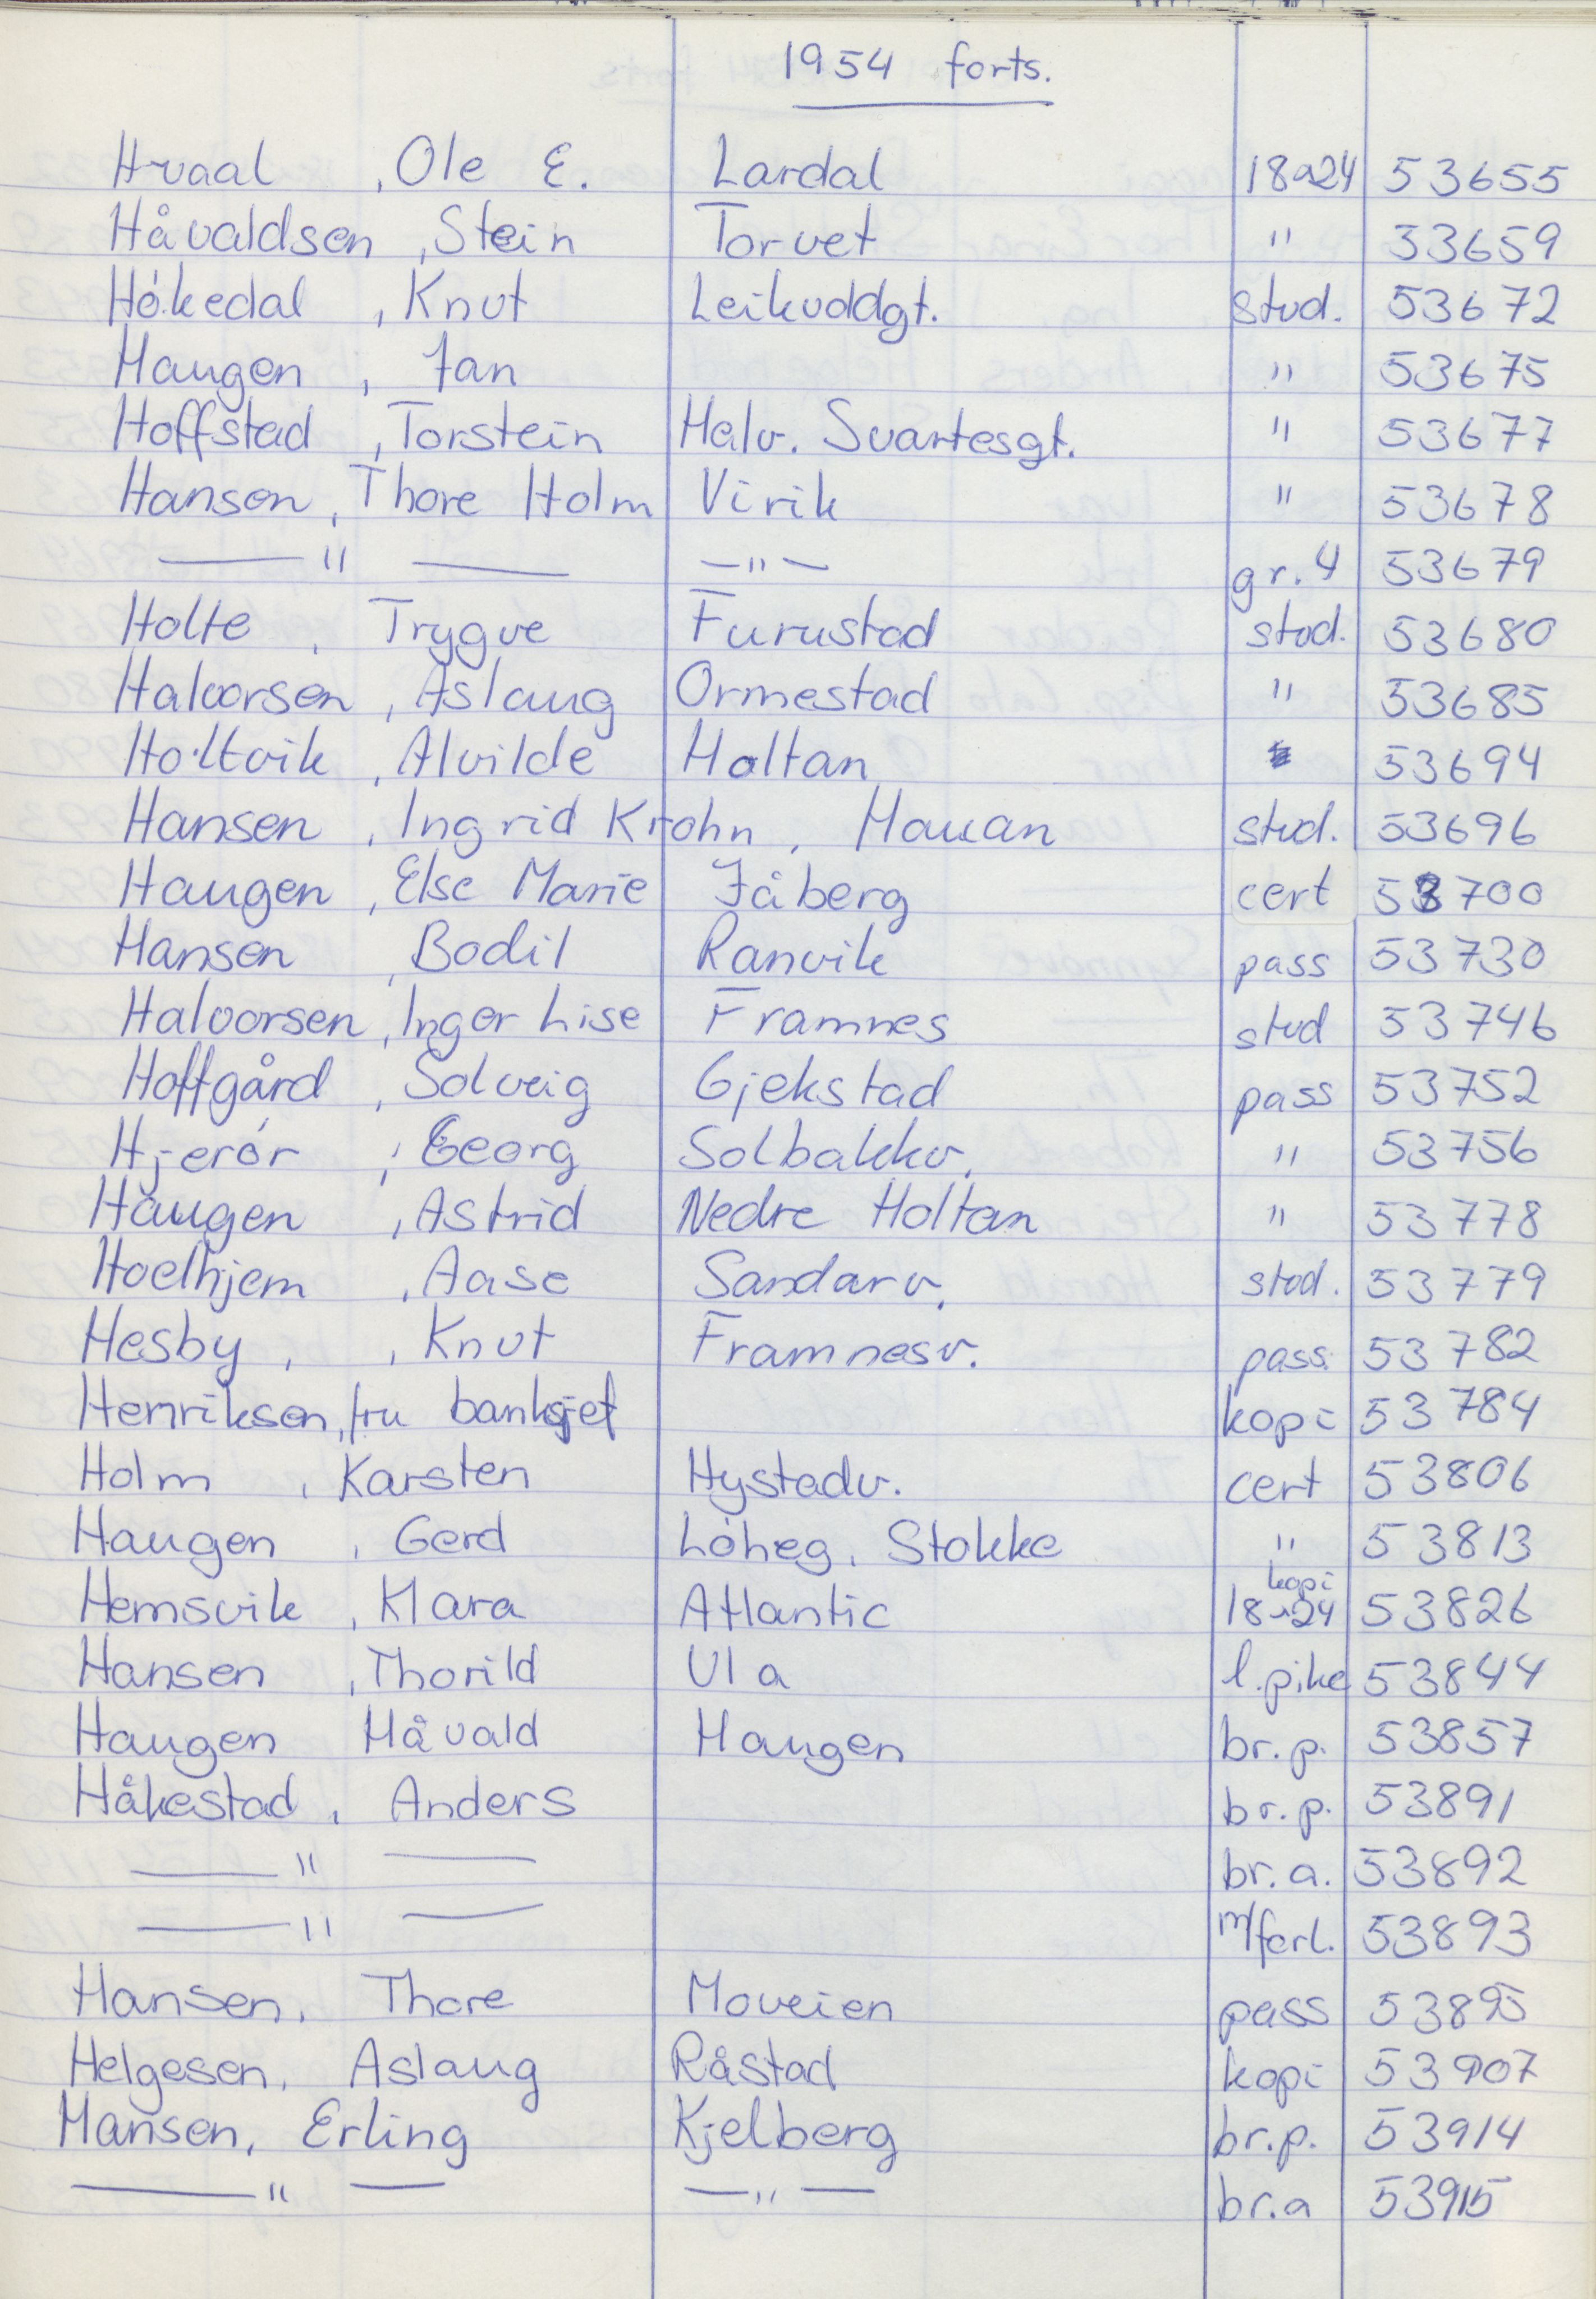 1954 forts.
Hvaal , Ole E. Lardal 18a24 53655
Håvaldsen , Stein Torvet " 53659
Hókedal , Knut Leikvollgt. stud. 53672
Haugen , Jan " 53675
Hoffstad , Torstein Halv. Svartesgt. " 53677
Hansen , Thore Holm Virik " 53678
—"— —"— gr. 4 53679
Holte , Trygve Furustad stud. 53680
Halvorsen , Aslaug Ormestad " 53685
Holtvik , Alvilde Holtan 53694
Hansen , Ingrid Krohn , Hauan stud. 53696
Haugen , Else Marie Jåberg cert 53700
Hansen , Bodil Ranvik pass 53730
Halvorsen , Inger Lise Framnes stud 53746
Hoffgård , Solveig Gjekstad pass 53752
Hjerór , Georg Solbakkv. " 53756
Haugen , Astrid Nedre Holtan " 53778
Hoelhjem , Aase Sandarv. stud. 53779
Hesby , , Knut Framnesv. pass. 53782
Henriksen, fru banksjef kopi 53784
Holm , Karsten Hystadv. cert 53806
Haugen , Gerd Lóheg. Stokke " 53813
Hemsvik , Klara Atlantic kopi 18a24 53826
Hansen , Thorild Ula l.pike 53844
Haugen Håvald Haugen br.p. 53857
Håkestad , Anders br.p. 53891
—"— br.a. 53892
—"— m/forl. 53893
Hansen, Thore Moveien pass 53895
Helgesen, Aslaug Råstad kopi 53907
Hansen, Erling Kjelberg br.p. 53914
—"— —"— br.a 53915